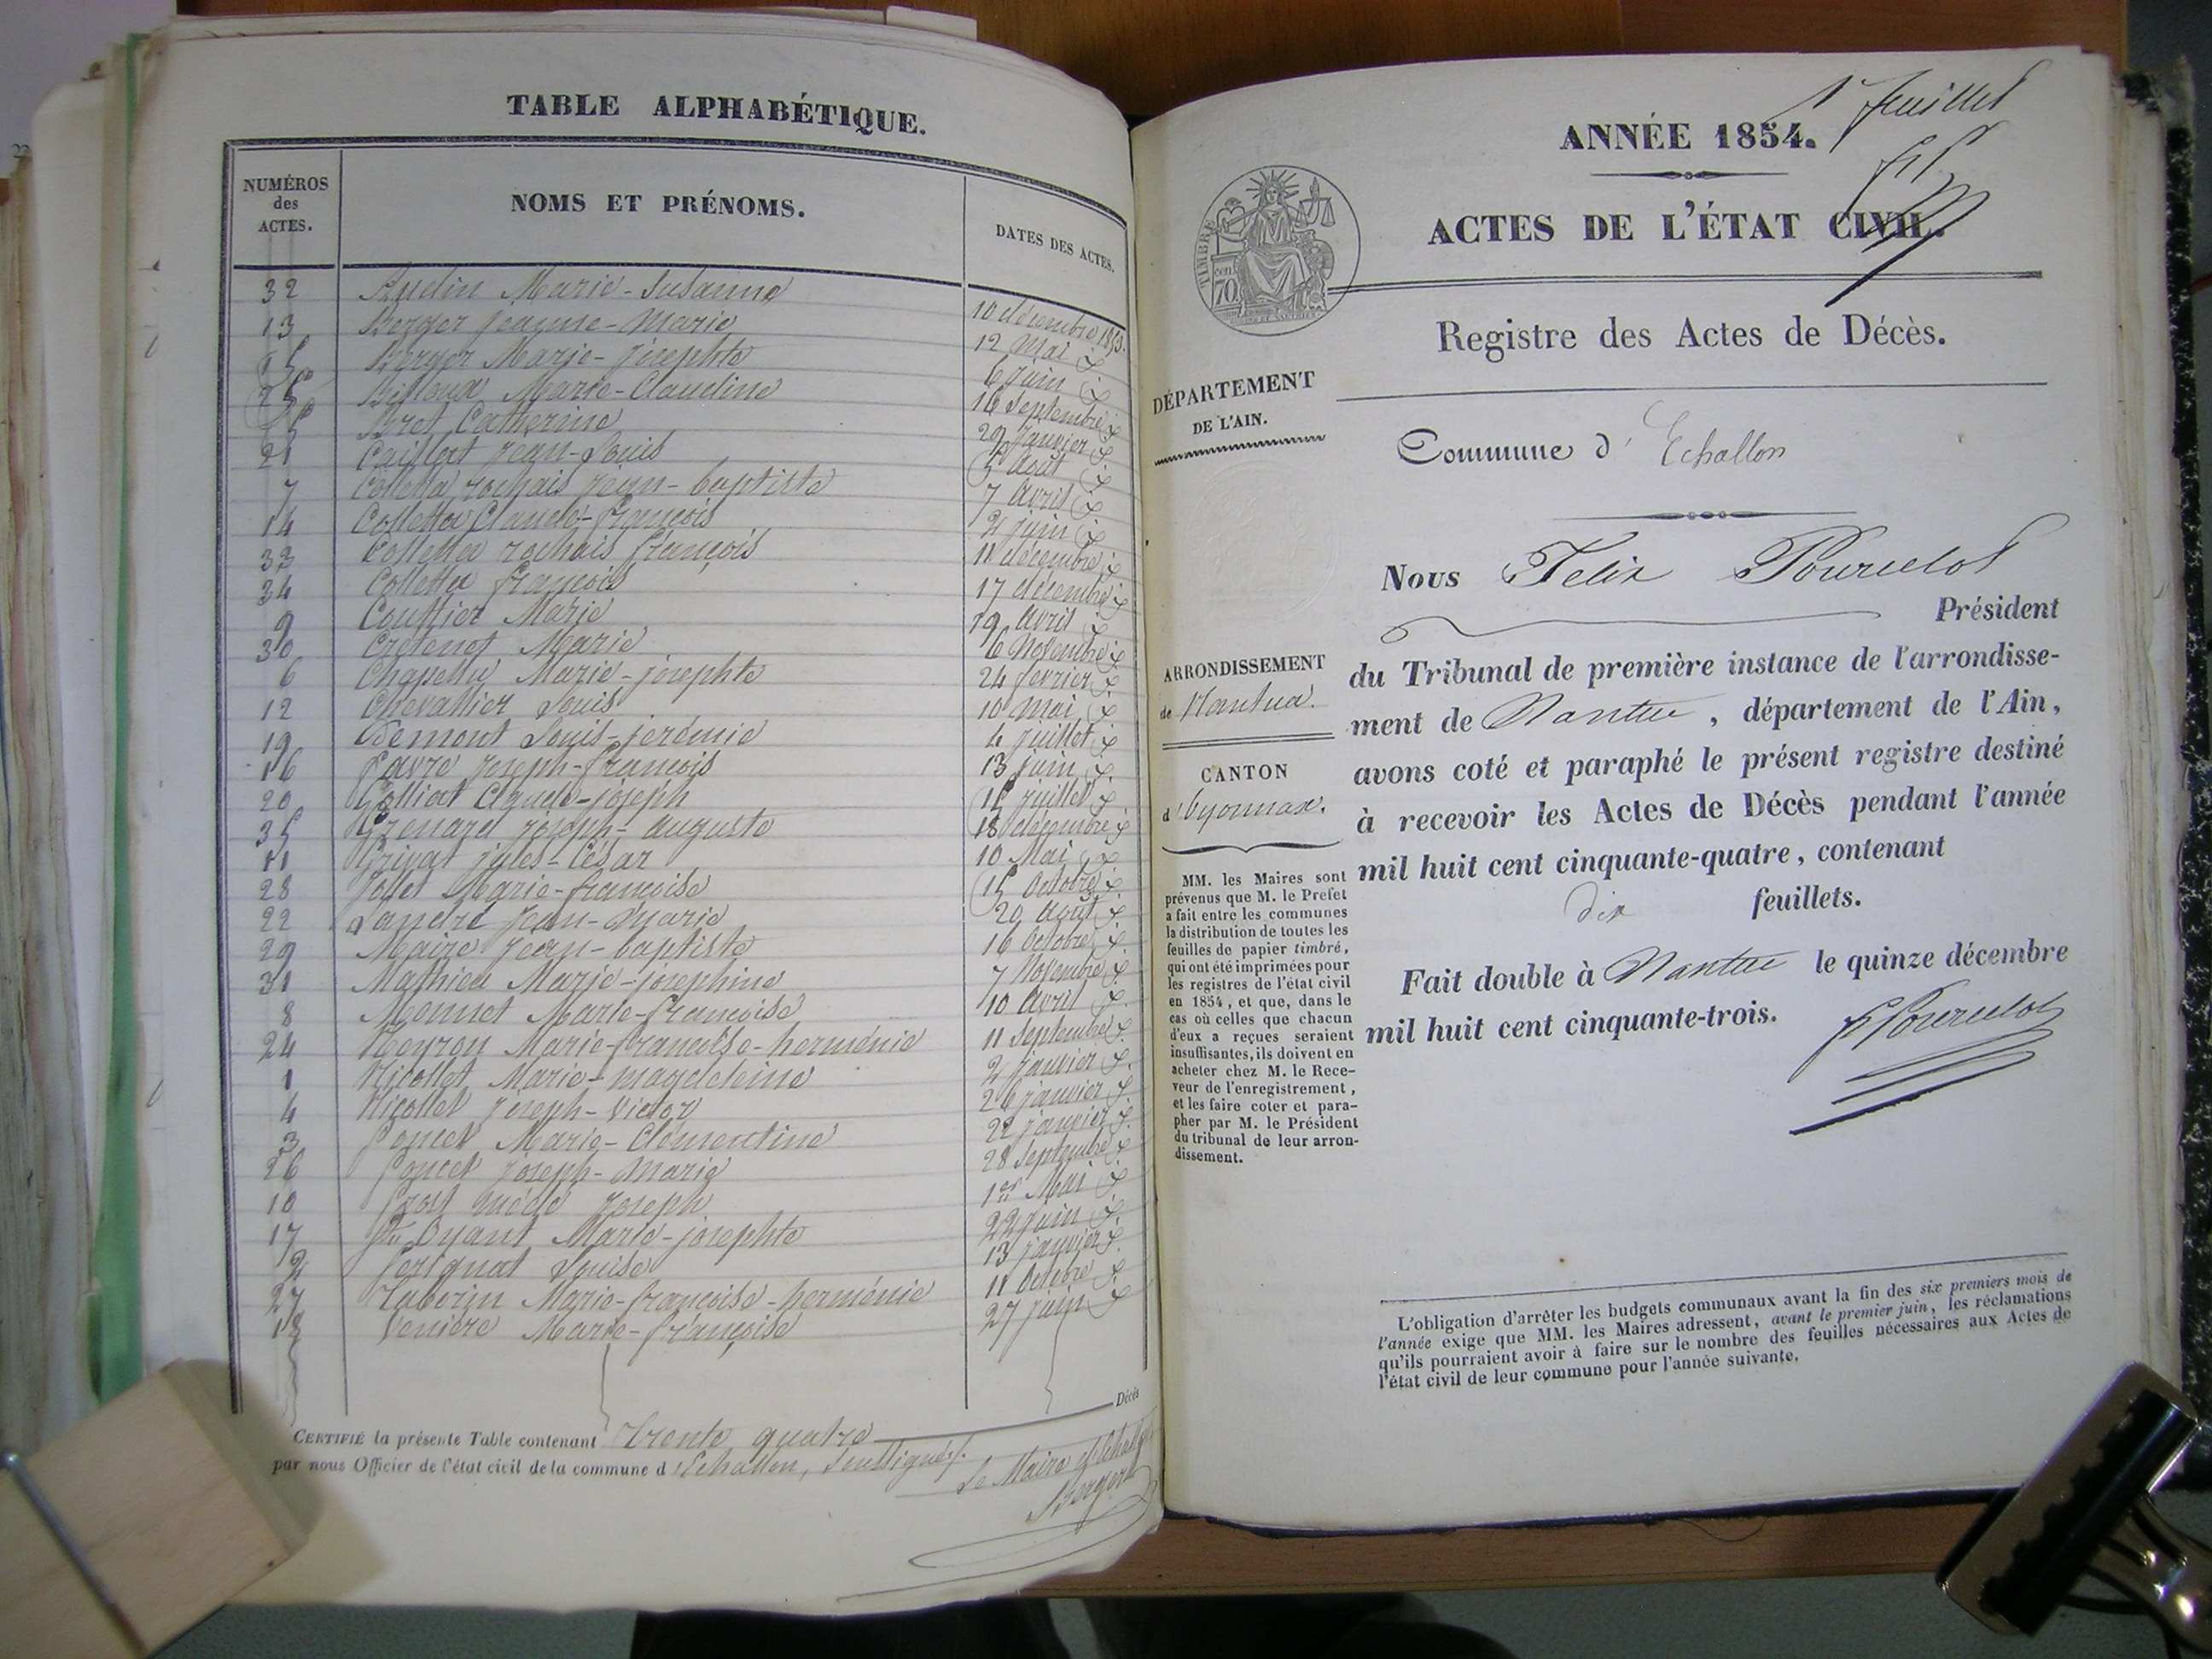 TABLE ALPHABÉTIQUE.
NUMÉROS des ACTES.
NOMS ET PRÉNOMS.
DATES DES ACTES.
32 Audin Marie-Susanne 10 décembre 1853.
13 Berger Jeanne-Marie 12 Mai
15 Berger Marie-josephte 6 juin
25 Billoud Marie-Claudine 16 Septembre
5 Bret Catherine 29 Janvier
21 Caillat Jean-Louis 5 Août
7 Colletta rochais Jean-baptiste 7 Avril
14 Colletta Claude-françois 2 juin
33 Colletta rochais françois 11 décembre
34 Colletta françois 17 décembre
9 Couttier Marie 19 Avril
30 Cretenet Marie 6 Novembre
6 Chapelu Marie-josephte 24 fevrier
12 Chevallier Louis 10 Mai
19 Démont Louis-jérémie 4 juillet
16 favre Joseph-françois 13 juin
20 Golliat Claude-joseph 15 juillet
35 Grenard Joseph-Auguste 18 décembre
11 Privat Jules-César 10 Mai
28 Jollet Marie-françoise 15 Octobre
22 Landre Jean-Marie 20 Août
29 Maire Jean-baptiste 16 Octobre
31 Mathieu Marie-joséphine 7 Novembre
8 Monnet Marie-françoise 10 Avril
24 Neyron Marie-françoise-herménie 11 Septembre
1 Nicollet Marie-magdeleine 2 janvier
4 Nicollet Joseph-Victor 26 janvier
3 Poncet Marie-Clémentine 22 janvier
26 Poncet Joseph-Marie 28 Septembre
10 Prost Joseph 1er Mai
17 Oyant Marie-josephte 22 juin
2 Serignat Louise 13 janvier
27 Tuberin Marie-françoise-herménie 11 Octobre
18 Venière Marie-françoise 27 juin
Décès
CERTIFIÉ la présente Table contenant trente quatre
par nous Officier de l'état civil de la commune d'Echallon, Soussigné.
Le Maire d'Echallon
Berger
1er feuillet
ANNÉE 1854.
ACTES DE L'ÉTAT CIVIL.
TIMBRE
cent. 70
Registre des Actes de Décès.
DÉPARTEMENT
DE L'AIN.
Commune d'Echallon
Nous Felix Pourcelot
Président
ARRONDISSEMENT
de Nantua.
CANTON
d'Oyonnax.
du Tribunal de première instance de l'arrondisse-
ment de Nantua, département de l'Ain,
avons coté et paraphé le présent registre destiné
à recevoir les Actes de Décès pendant l'année
mil huit cent cinquante-quatre, contenant
dix feuillets.
Fait double à Nantua le quinze décembre
mil huit cent cinquante-trois.
F Pourcelot
MM. les Maires sont
prévenus que M. le Prefet
a fait entre les communes
la distribution de toutes les
feuilles de papier timbré,
qui ont été imprimées pour
les registres de l'état civil
en 1854, et que, dans le
cas où celles que chacun
d'eux a reçues seraient
insuffisantes, ils doivent en
acheter chez M. le Rece-
veur de l'enregistrement,
et les faire coter et para-
pher par M. le Président
du tribunal de leur arron-
dissement.
L'obligation d'arrêter les budgets communaux avant la fin des six premiers mois de
l'année exige que MM. les Maires adressent, avant le premier juin, les réclamations
qu'ils pourraient avoir à faire sur le nombre des feuilles nécessaires aux Actes de
l'état civil de leur commune pour l'année suivante.